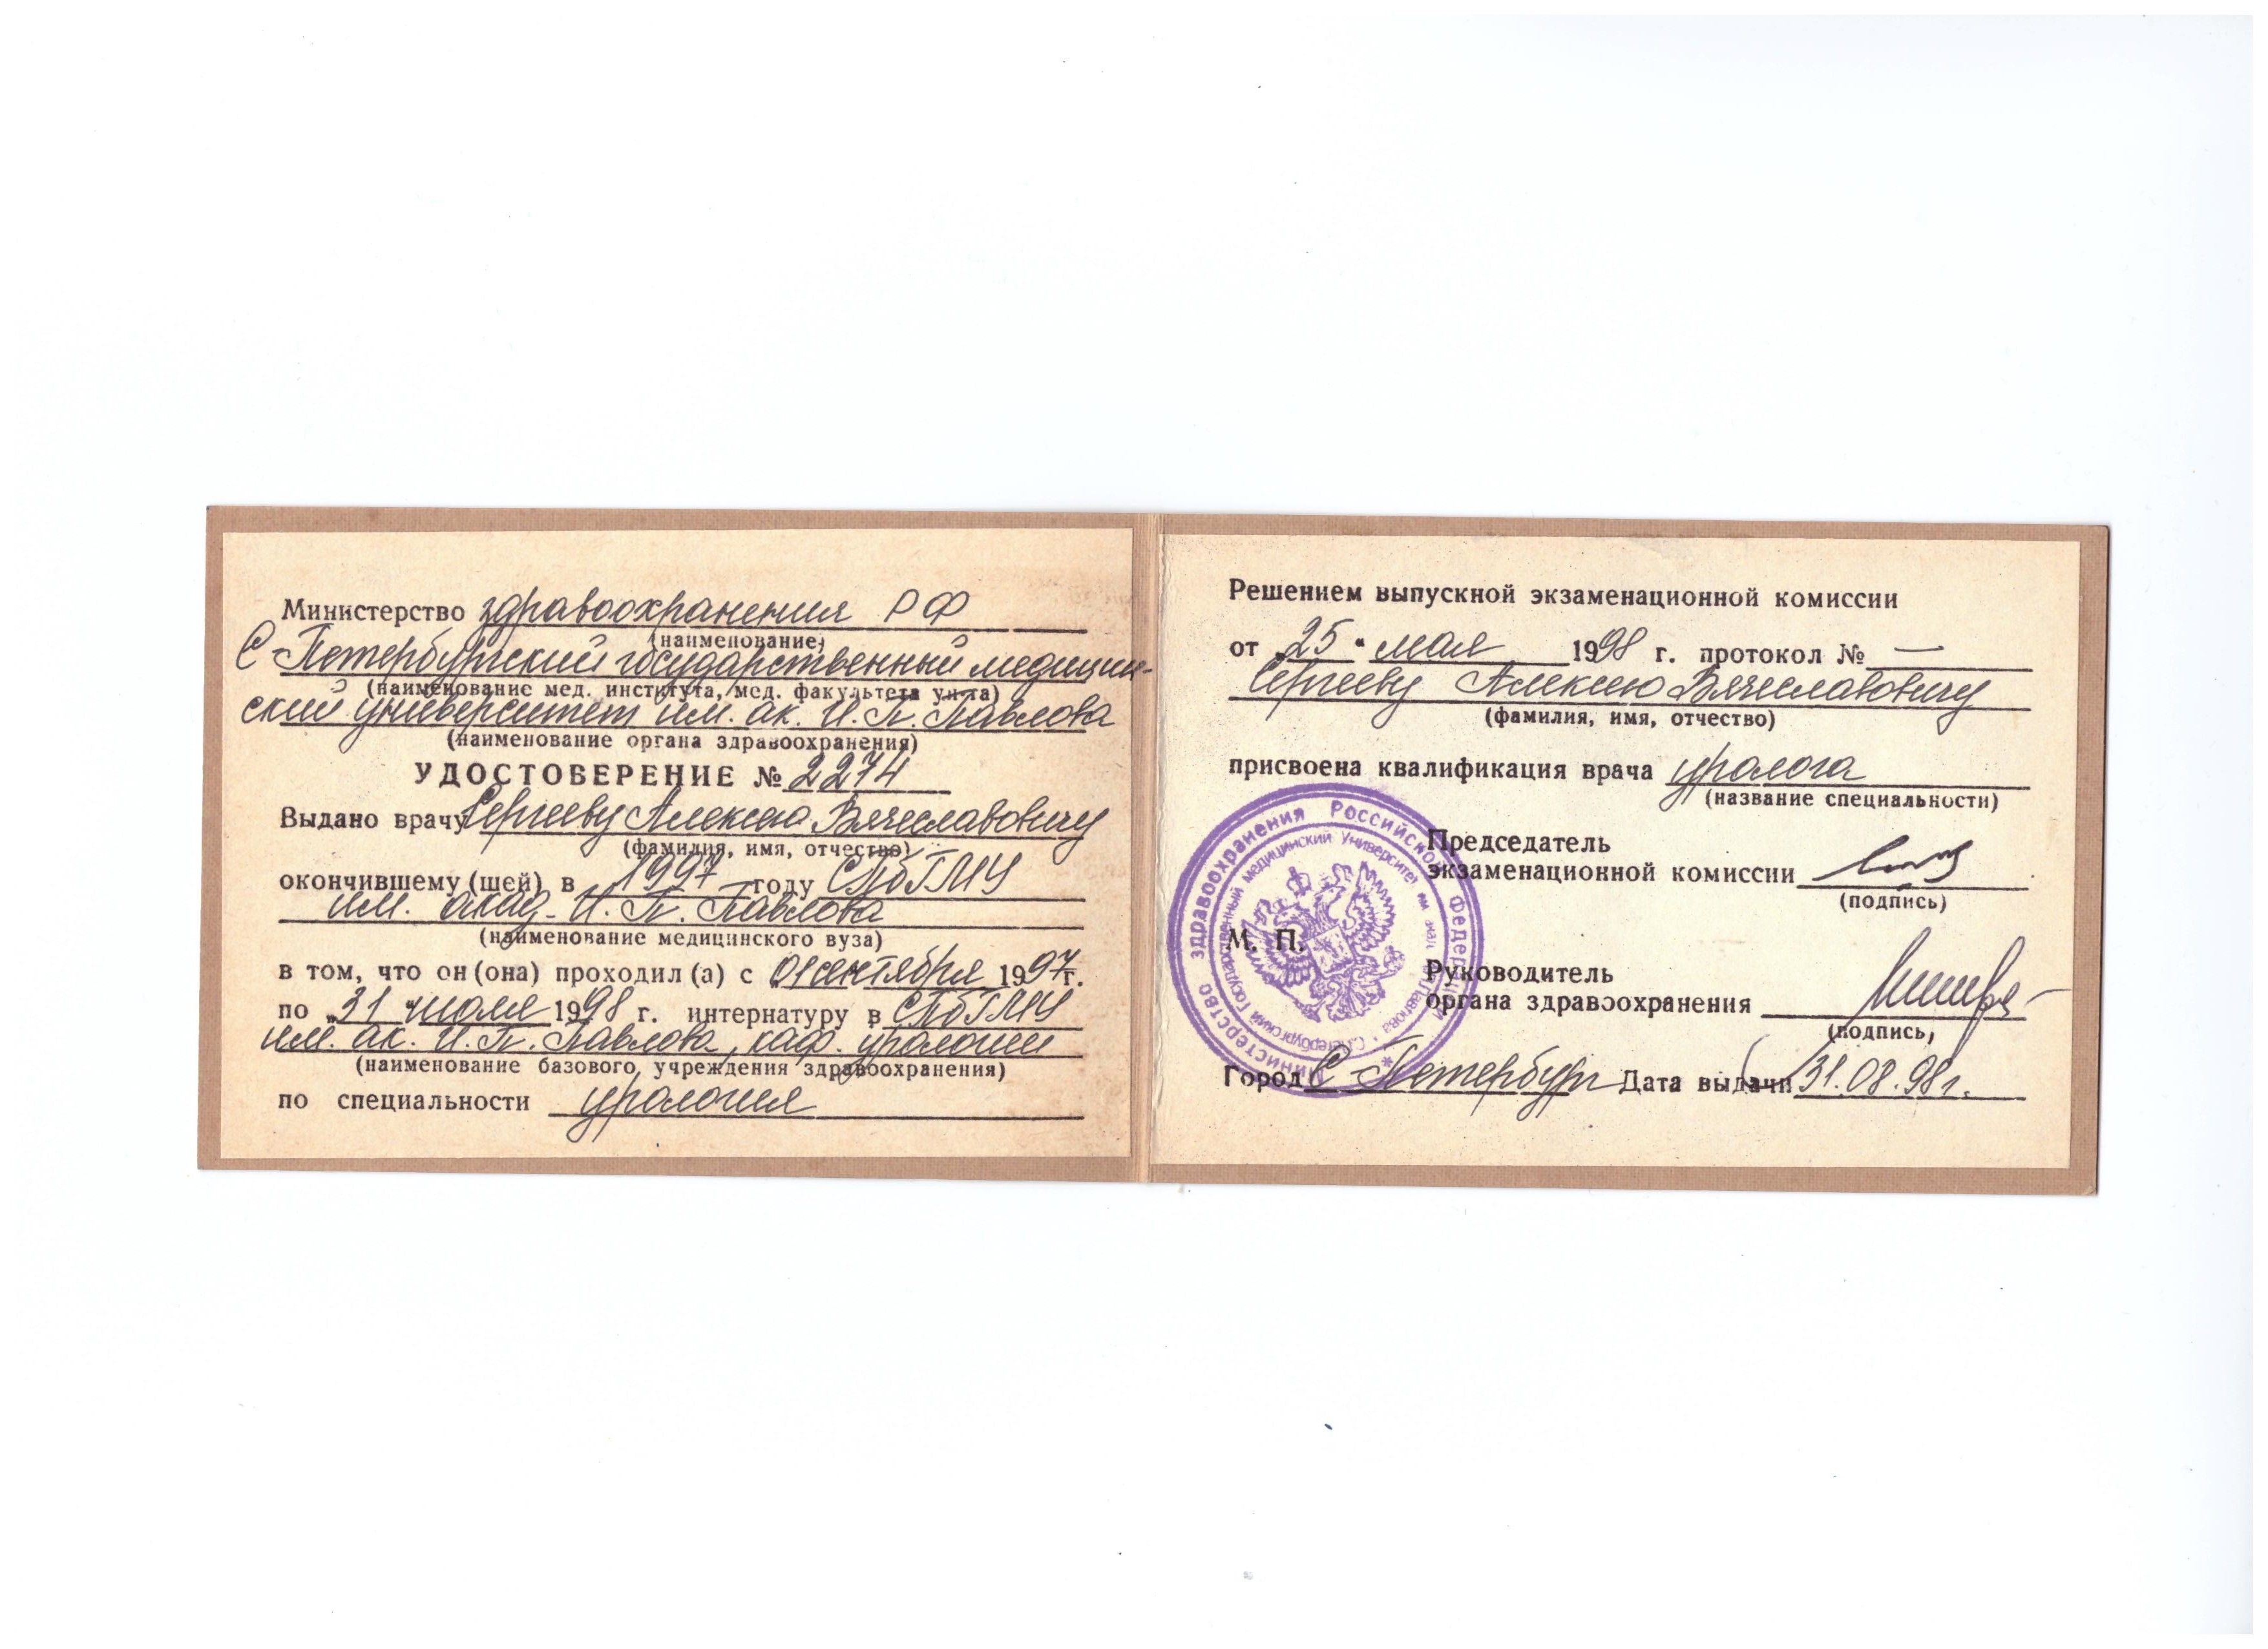 Министерство здравоохранения РФ
(наименование)
С-Петербургский государственный медицин-
(наименование мед. института, мед. факультета ун-та)
ский университет им. ак. И. П. Павлова
(наименование органа здравоохранения)
УДОСТОВЕРЕНИЕ № 2274
Выдано врачу Сергееву Алексею Вячеславовичу
(фамилия, имя, отчество)
окончившему (шей) в 1997 году СПбГМУ
им. акад. И. П. Павлова
(наименование медицинского вуза)
в том, что он (она) проходил (а) с 01 сентября 1997 г.
по „31 “ июля 1998 г. интернатуру в СПбГМУ
им. ак. И. П. Павлова, каф. урологии
(наименование базового учреждения здравоохранения)
по специальности урология
Решением выпускной экзаменационной комиссии
от „25 “ мая 1998 г. протокол № —
Сергееву Алексею Вячеславовичу
(фамилия, имя, отчество)
присвоена квалификация врача уролога
(название специальности)
Председатель
экзаменационной комиссии
(подпись)
М. П.
Руководитель
органа здравоохранения
(подпись)
Город С-Петербург Дата выдачи 31.08.98г.
Министерство здравоохранения Российской Федерации
С.Петербургский Государственный медицинский Университет им. акад. И.П. Павлова